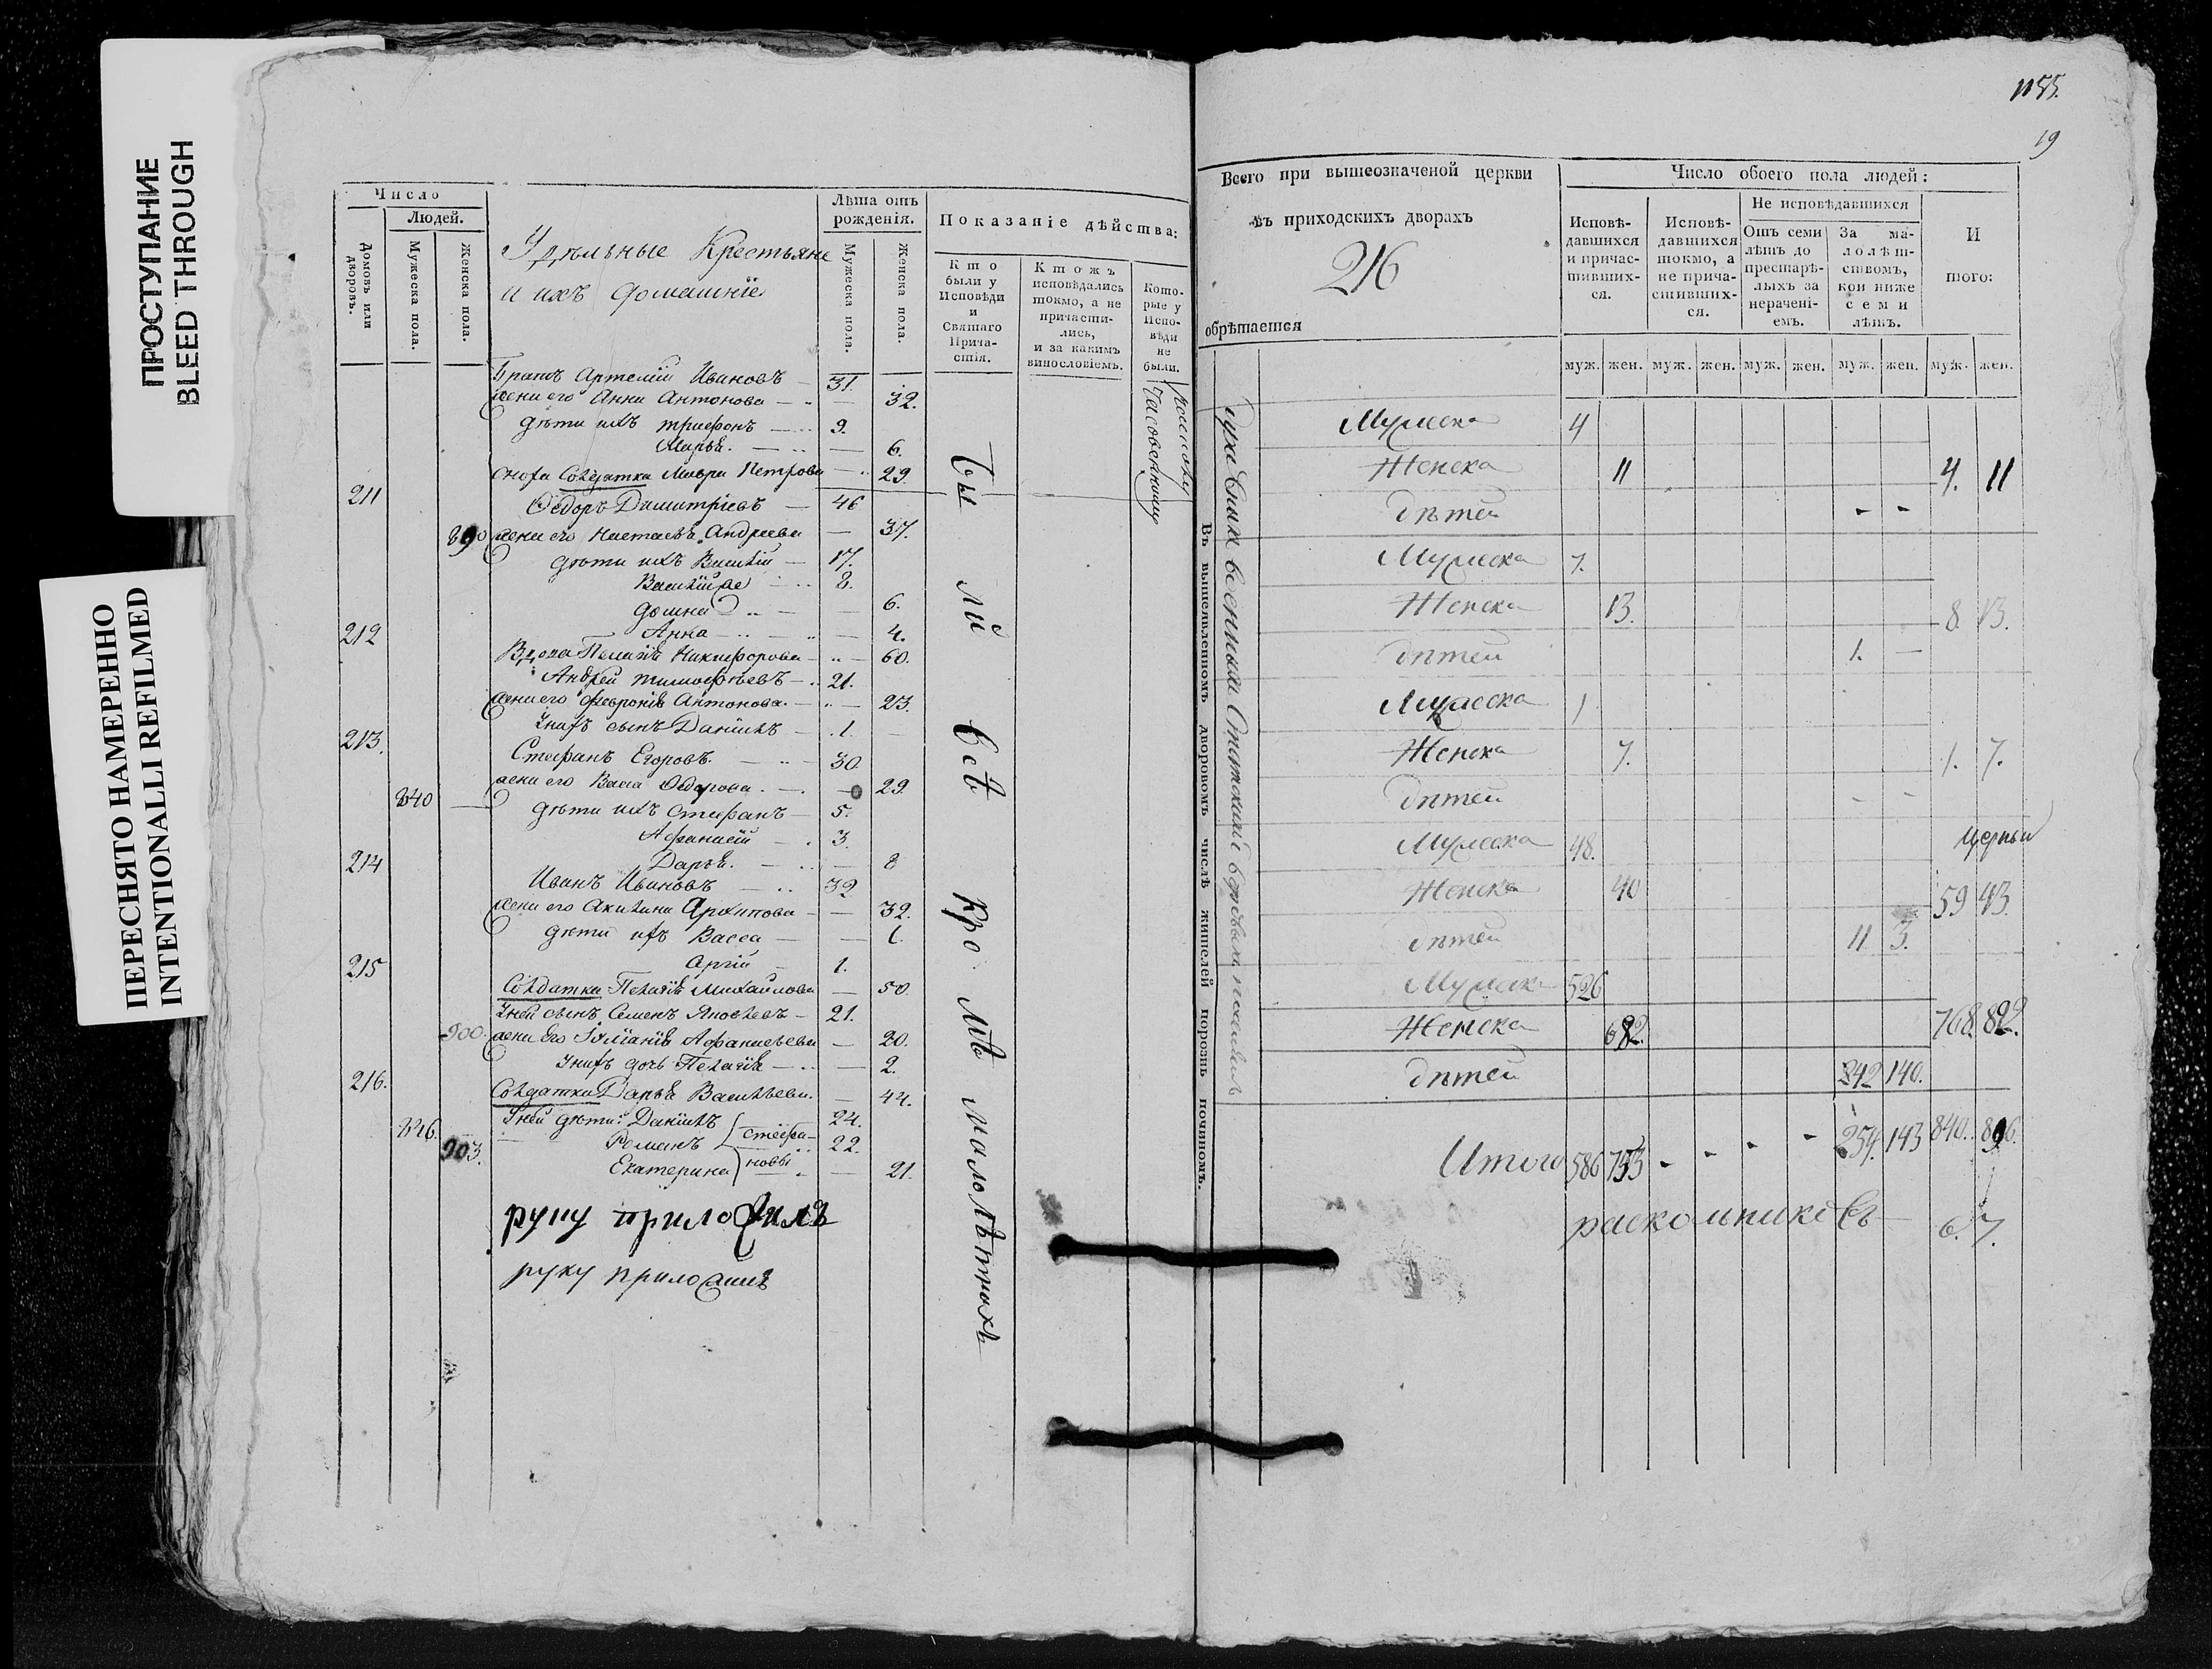 ПРОСТУПАНИЕ
BLEED THROUGH
ПЕРЕСНЯТО НАМЕРЕННО
INTENTIONALLI REFILMED
Число
Людей.
Домовъ или дворовъ.
Мужеска пола.
Женска пола.
Удѣльные Крестьяне
и ихъ домашніе
Лѣта отъ рожденія.
Мужеска пола.
Женска пола.
Показаніе дѣйства:
Кто были у Исповѣди и Святаго Причастія.
Ктожъ исповѣдались токмо, а не причастились, и за какимъ винословіемъ.
Которые у Исповѣди не были.
Братъ Артемій Ивановъ — 31.
жена его Анна Антонова — 32.
дѣти ихъ Трифонъ — 9.
Марья. — 6.
сноха Солдатка Мавра Петрова — 29.
211
Ѳедоръ Димитріевъ — 46
890 жена его Настасья Андреева — 37.
дѣти ихъ Василій — 17.
Василій же 2.
Домна — 6.
Анна — 4.
212
Вдова Пелагія Никифорова — 60.
Андрей Тимофѣевъ — 21.
жена его Февронія Антонова. — 23.
у нихъ сынъ Даніилъ — 1.
213.
Стефанъ Егоровъ. — 30.
жена его Васса Ѳедорова. — 29.
840
дѣти ихъ Стефанъ — 5.
Афанасій — 3.
Дарья. — 8
214
Иванъ Ивановъ — 32
жена его Акилина Архипова — 32.
дѣти ихъ Васса —
1.
215
Солдатка Пелагія Михайлова — 50.
у ней сынъ Семенъ Яковлевъ — 21.
900. жена его Іуліанія Афанасьева — 20.
у нихъ дочь Пелагія — 2.
216.
Солдатка Дарья Васильева. — 44.
846. у ней дѣти: Даніилъ 24.
903. Романъ Стефановы 22.
Екатерина — 21.
Были всѣ кромѣ малолѣтныхъ
руку приложилъ
руку приложилъ
1155.
19
Всего при вышеозначеной церкви
въ приходскихъ дворахъ
216
обрѣтается
Число обоего пола людей:
Исповѣдавшихся и причастившихся.
Исповѣдавшихся токмо, а не причастившихся.
Не исповѣдавшихся
Отъ семи лѣтъ до престарѣлыхъ за нераченіемъ.
За малолѣтствомъ, кои ниже семи лѣтъ.
И того:
муж. жен. муж. жен. муж. жен. муж. жен. муж. жен.
Въ вышеявленномъ дворовомъ числѣ жителей порознь по чиномъ.
Мужеска 4
Женска 11 4. 11
дѣтей - -
Мужеска 7.
Женска 13. 8 13.
дѣтей 1. —
Мужеска 1
Женска 7. 1. 7.
дѣтей - -
Мужеска 48.
Женска 40 59 43.
дѣтей 11 3.
Мужеска 526
Женска 682. 768. 822.
дѣтей 242 140.
Итого 586 753 - - - - 254. 143 840. 896.
раскольниковъ — 6. 7.